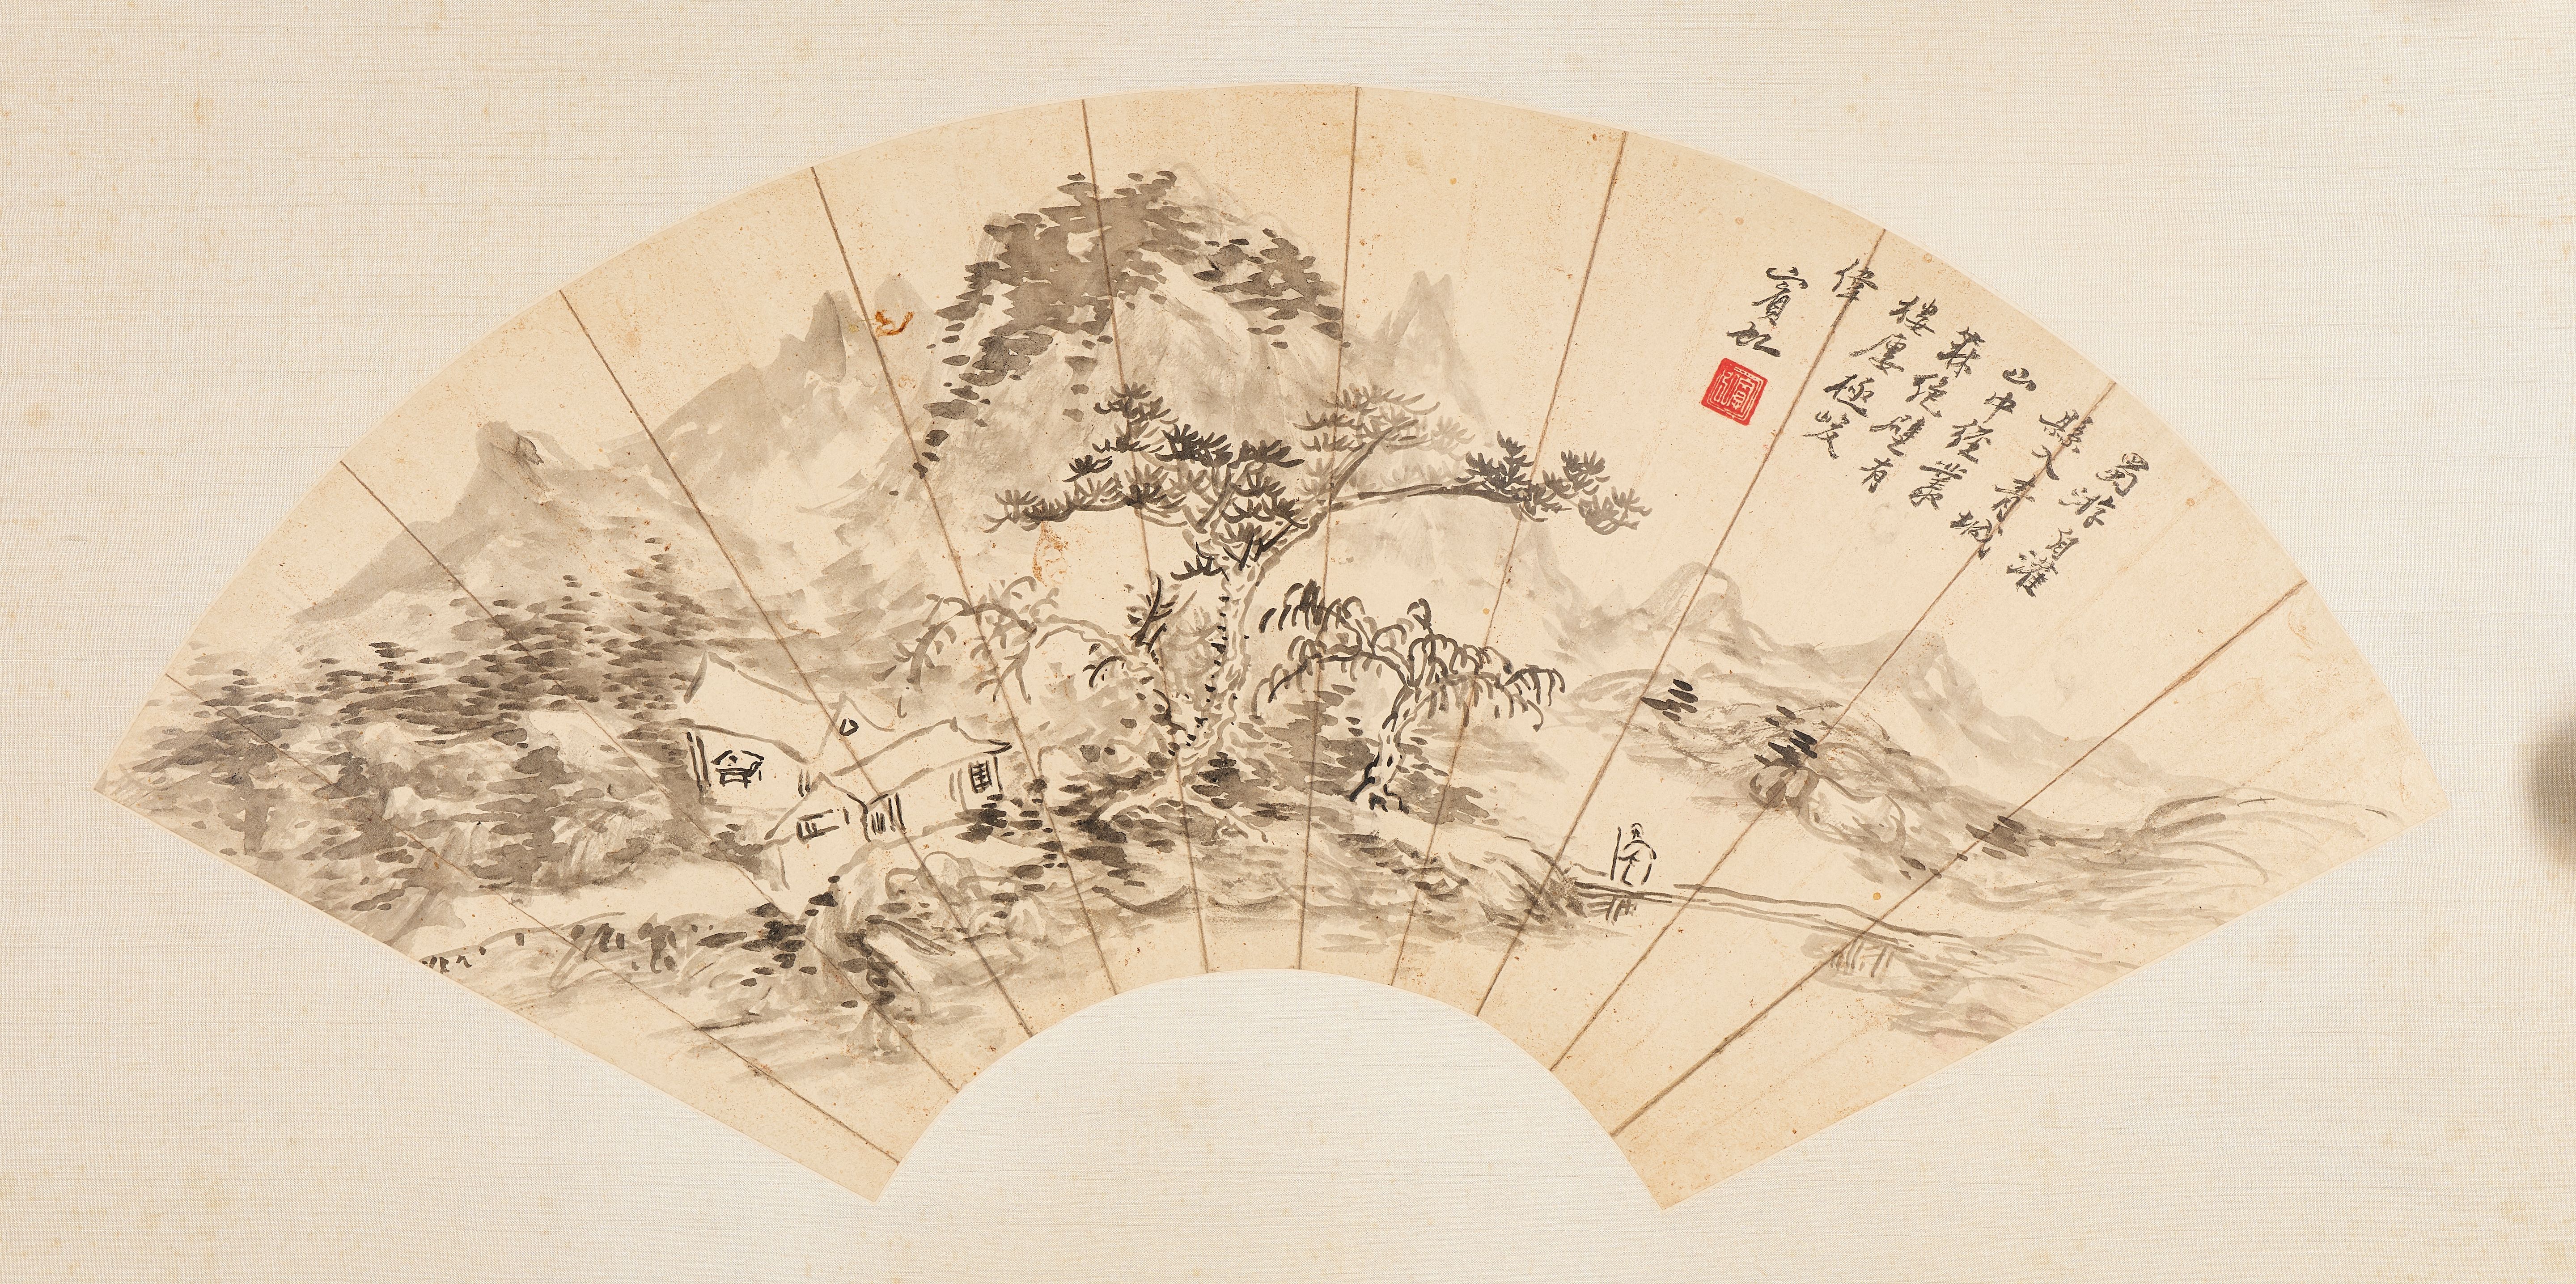 蜀游自灌
縣入青城
山中經叢
森絕壁有
樓屋極峻
偉
賓虹
賓虹